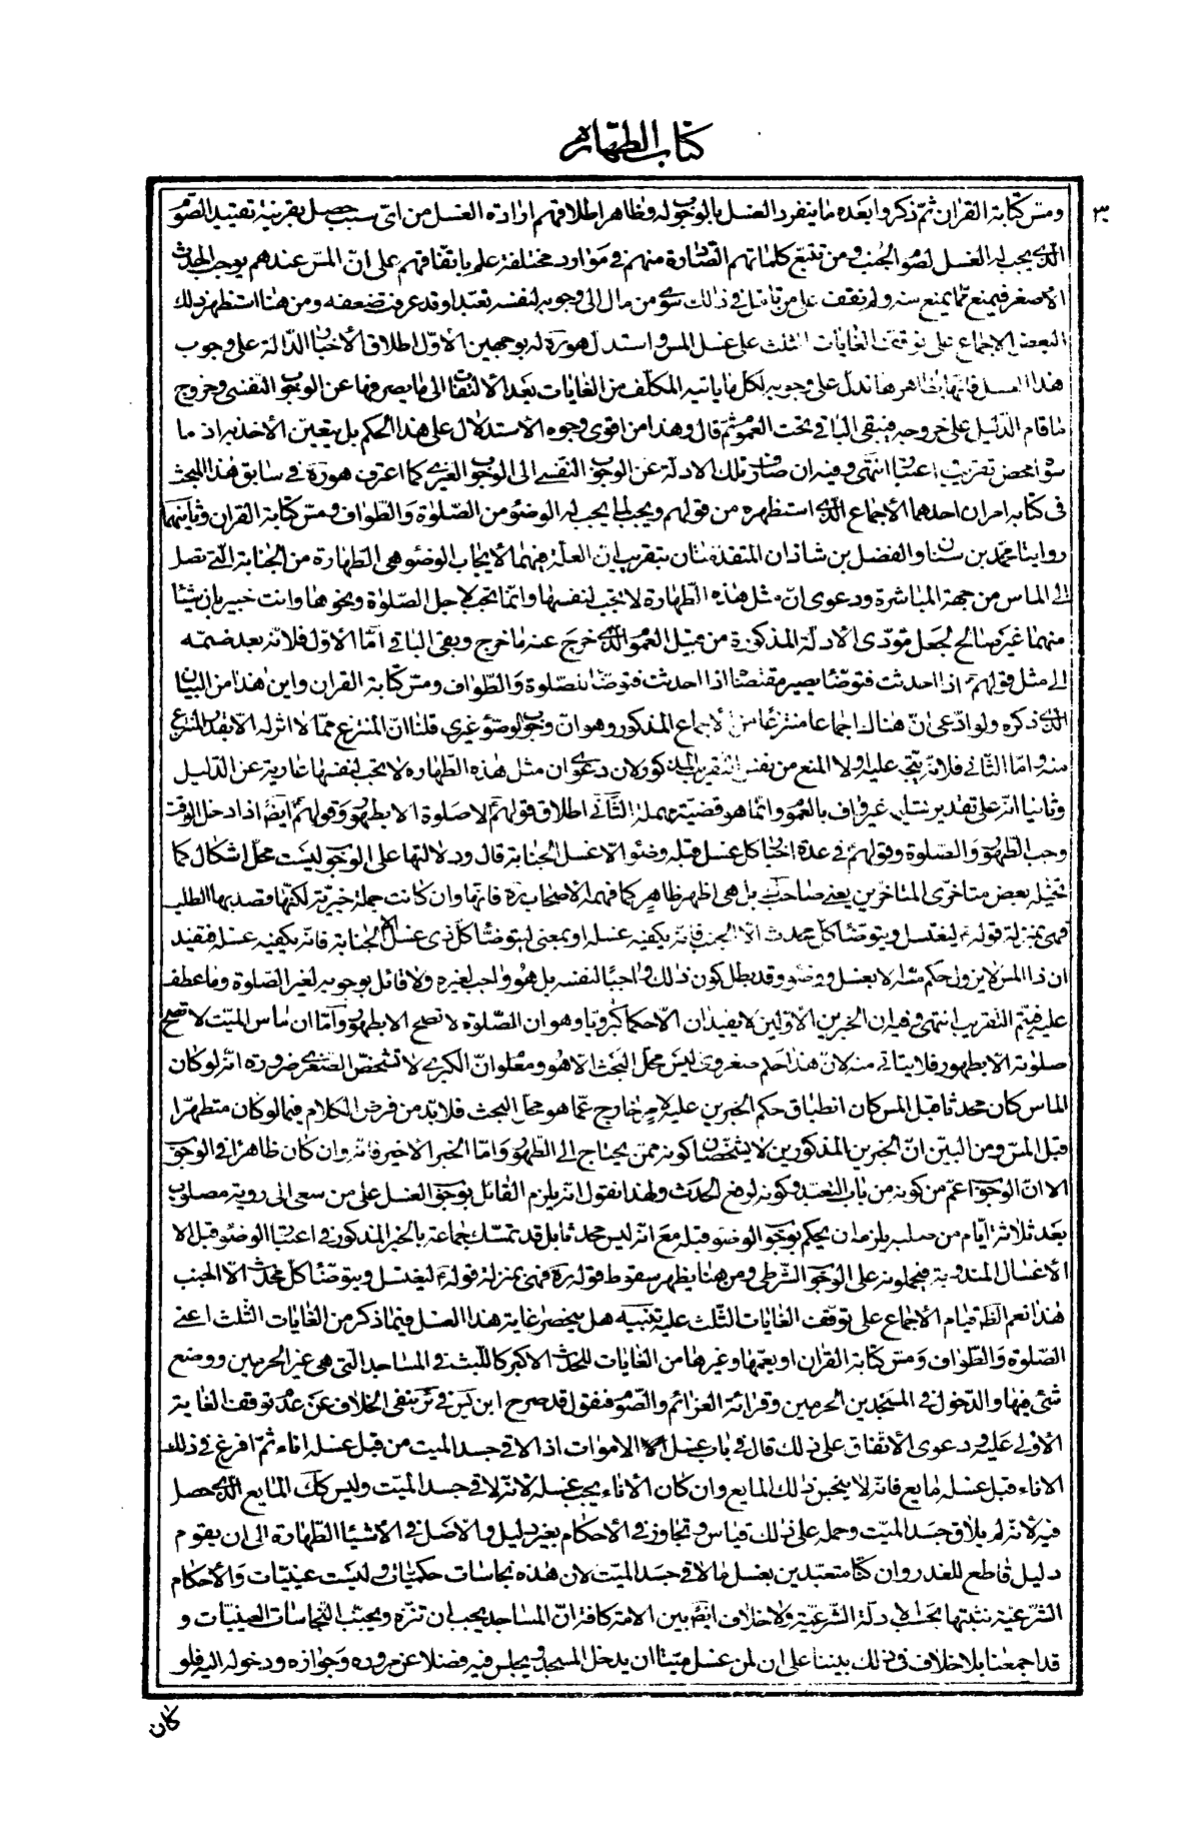 كتاب الطهارة
٣
ومسّ كتابة القران ثمّ ذكروا بعده ما ينفرد الغسل بالوجوب له وظاهر اطلاقهم ارادة الغسل من اىّ سبب حصل بقرينة تقييد الصّوم
الّذى يجب له الغسل لصوم الجنب ومن تتبّع كلماتهم الصّادرة منهم فى موارد مختلفة علم باتّفاقهم على انّ المسّ عندهم يوجب الحدث
الأصغر فيمنع ممّا يمنع منه ولم نقف على من تامّل فى ذلك سوى من مال الى وجوبه لنفسه تعبّدا وقد عرفت ضعفه ومن هنا استظهر ذلك
البعض الإجماع على توقّف الغايات الثلث على غسل المسّ واستدلّ هو ره له بوجهين الأوّل اطلاق الأخبار الدّالة على وجوب
هذا الغسل فانّها بظاهرها تدلّ على وجوبه لكل ما ياتيه المكلّف من الغايات بعد الالتفات الى ما يصرفها عن الوجوب النّفسى وخروج
ما قام الدّليل على خروجه فيبقى الباقى تحت العموم ثمّ قال وهذا من اقوى وجوه الاستدلال على هذا الحكم بل يتعيّن الأخذ به اذ ما
سواه محض تقريب واعتبار انتهى وفيه ان صارف تلك الادلة عن الوجوب النفسى الى الوجوب الغيرى كما اعترف هو ره فى سابق هذا المبحث
فى كتابه امران احدهما الأجماع الّذى استظهره من قولهم ويجب لما يجب له الوضوء من الصّلوة والطّواف ومسّ كتابة القران وثانيهما
روايتا محمّد بن سنان والفضل بن شاذان المتقدّمتان بتقريب ان العلّة فيهما لايجاب الوضوء هى الطّهارة من الجنابة الّتى تصل
الى الماس من جهة المباشرة ودعوى انّ مثل هذه الطّهارة لا تجب لنفسها وانّما تجب لاجل الصّلوة ونحوها وانت خبير بان شيئا
منهما غير صالح لجعل مؤدّى الأدلّة المذكورة من قبيل العموم الّذى خرج عنه ما خرج وبقى الباقى امّا الأوّل فلانّه بعد ضمّه
الى مثل قولهم ع اذا احدثت فتوضّا يصير مقتضاه اذا احدثت فتوضّا للصّلوة والطّواف ومسّ كتابة القران واين هذا من البيان
الّذى ذكره ولو ادّعى انّ هناك اجماعا منتزعا من الإجماع المذكور وهو انّ وجوب الوضوء غيرى قلنا انّ المنتزع ممّا لا اثر له الا بقدر المنتزع
منه وامّا الثّانى فلانّه يتّجه عليه اولا المنع من نفس التقريب المذكور لان دعوى ان مثل هذه الطّهارة لا تجب لنفسها عارية عن الدّليل
وثانيا انّه على تقدير تسليمه غير واف بالعموم وانّما هو قضيّة مهملة الثّانى اطلاق قولهم ع لا صلوة الا بطهور وقولهم ع ايضا اذا دخل الوقت
وجب الطّهور والصّلوة وقولهم ع فى عدّة اخبار كل غسل قبله وضوء الا غسل الجنابة قال ودلالتها على الوجوب ليست محلّ اشكال كما
تخيّله بعض متاخّرى المتاخّرين يعنى صاحب بل هى اظهر ظاهر كما فهمه الاصحاب ره فانّها وان كانت جملة خبريّة لكنّها قصد بها الطلب
فهى بمنزلة قوله ع ليغتسل ويتوضّا كلّ محدث الا الجنب فانّه يكفيه غسله او بمعنى ليتوضّا كلّ ذى غسل الا الجنابة فانّه يكفيه غسله فيفيد
ان ذا المسّ لا يزول حكم مسّه الا بغسل ووضوء وقد بطل كون ذلك واجبا لنفسه بل هو واجب لغيره ولا قائل بوجوبه لغير الصّلوة وما عطف
عليه فيتمّ التقريب انتهى وفيه ان الخبرين الاوّلين لا يفيدان الا حكما كبرويّا وهو ان الصّلوة لا تصحّ الا بطهور وامّا ان ماس الميّت لا تصحّ
صلوته الا بطهور فلا يتاتى منه لانّ هذا حكم صغروىّ ليس محلّ البحث الا هو ومعلوم انّ الكبرى لا تشخّص الصّغرى ضرورة انّه لو كان
الماس كان محدثا قبل المسّ كان انطباق حكم الخبرين عليه لامر خارج عمّا هو محلّ البحث فلا بدّ من فرض الكلام فيما لو كان متطهّرا
قبل المسّ ومن البيّن انّ الخبرين المذكورين لا يشخّصان كونه ممّن يحتاج الى الطّهور وامّا الخبر الاخير فانّه وان كان ظاهرا فى الوجوب
الا انّ الوجوب اعمّ من كونه من باب التعبّد وكونه لرفع الحدث ولهذا نقول انّه يلزم القائل بوجوب الغسل على من سعى الى رؤية مصلوب
بعد ثلاثة ايّام من صلبه يلزمه ان يحكم بوجوب الوضوء قبله مع انّه ليس محدثا بل قد تمسّك جماعة بالخبر المذكور فى اعتبار الوضوء قبل الا
الأغسال المندوبة فيحملونه على الوجوب الشّرطى ومن هنا يظهر سقوط قوله ره فهى بمنزلة قوله ع ليغتسل ويتوضّا كلّ محدث الا الجنب
هذا نعم الظ قيام الاجماع على توقّف الغايات الثّلث عليه تنبيه هل ينحصر غاية هذا الغسل فيما ذكر من الغايات الثّلث اعنى
الصّلوة والطّواف ومسّ كتابة القران او يعمّها وغيرها من الغايات للحدث الاكبر كاللّبث فى المساجد التى هى غير الحرمين ووضع
شئ فيها والدّخول فى المسجدين الحرمين وقرائة العزائم والصّوم فنقول قد صرح ابن ادريس فى ئر بنفى الخلاف عن عدم توقف الغاية
الأولى عليه ودعوى الاتّفاق على ذلك قال فى باب غسل الاموات اذا لاقى جسد الميت من قبل غسله اناء ثمّ افرغ فى ذلك
الاناء قبل غسله مايع فانّه لا ينجس ذلك المايع وان كان الأناء يجب غسله لانّه لاقى جسد الميّت وليس كك المايع الّذى حصل
فيه لانّه لم يلاق جسد الميّت وحمله على ذلك قياس وتجاوز فى الأحكام بغير دليل والاصل فى الأشياء الطّهارة الى ان يقوم
دليل قاطع للعذر وان كنّا متعبّدين بغسل ما لاقى جسد الميّت لان هذه نجاسات حكميّات وليست عينيّات والأحكام
الشّرعيّة نثبتها بحسب الادلّة الشّرعيّة ولا خلاف ايضا بين الامّة كافّة انّ المساجد يجب ان تنزّه وتجنّب النّجاسات العينيّات و
قد اجمعنا بلا خلاف فى ذلك بيننا على ان لمن غسل ميّتا ان يدخل المسجد ويجلس فيه فضلا عن مروره وجوازه ودخوله اليه فلو
كان